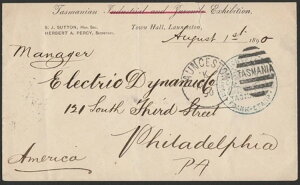 Tasmanian Industrial and Juvenile Exhibition,
S. J. SUTTON, Hon. Sec.
HERBERT A. PERCY, Secretary.
Town Hall, Launceston,
August 1st 1890
Manager
LAUNCESTON
TASMANIA
Electro Dynamic Co
121 South Third Street
Philadelphia
PA
America